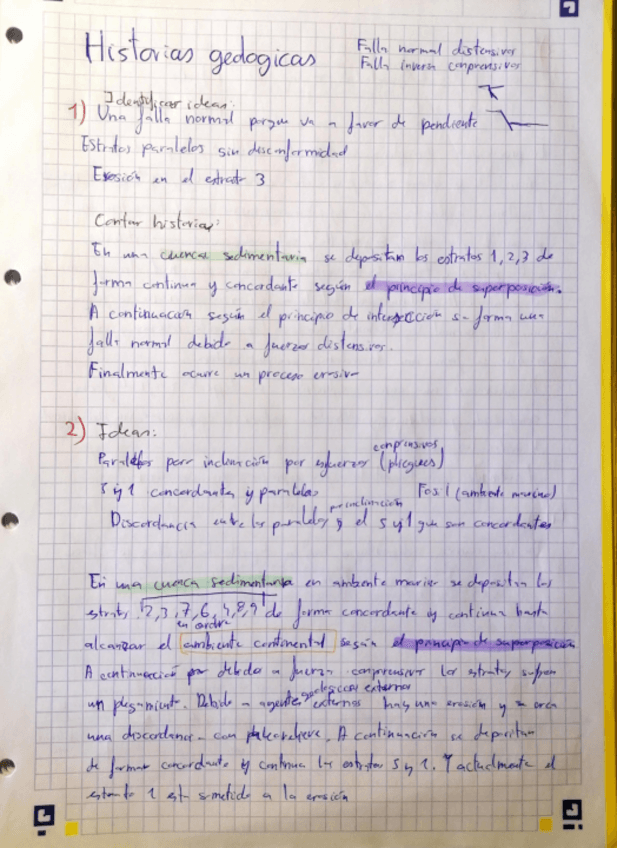 Historias geologicas
Falla normal distensivos
Falla inversa conprensivos
Identificar ideas:
1) Una falla normal porque va a favor de pendiente
Estratos paralelos sin desconformidad
Erosión en el estrato 3
Contar historias:
En una cuenca sedimentaria se depositan los estratos 1, 2, 3 de
forma continua y concordante según el principio de superposición.
A continuación según el principio de intersección se forma una
falla normal debido a fuerzas distensivos.
Finalmente ocurre un proceso erosivo
2) Ideas:
conprensivos
Paralelos pero inclinación por esfuerzos (pliegues)
5 y 1 concordantes y paralelos Fosil (ambiente marino)
inclinación
Discordancia entre los paralelos y el 5 y 1 que son concordantes
En una cuenca sedimentaria en ambiente marino se depositan los
estratos 2, 3, 7, 6, 4, 8, 9 de forma concordante y continua hasta
en orden
alcanzar el ambiente continental según el principio de superposición
A continuación debido a fuerza conprensivos los estratos sufren
geologicos externos
un plegamiento. Debido a agentes externos hay una erosión y se crea
una discordancia con paleorelieve. A continuación se depositan
de forma concordante y continua los estratos 5 y 1. Y actualmente el
estrato 1 está sometido a la erosión